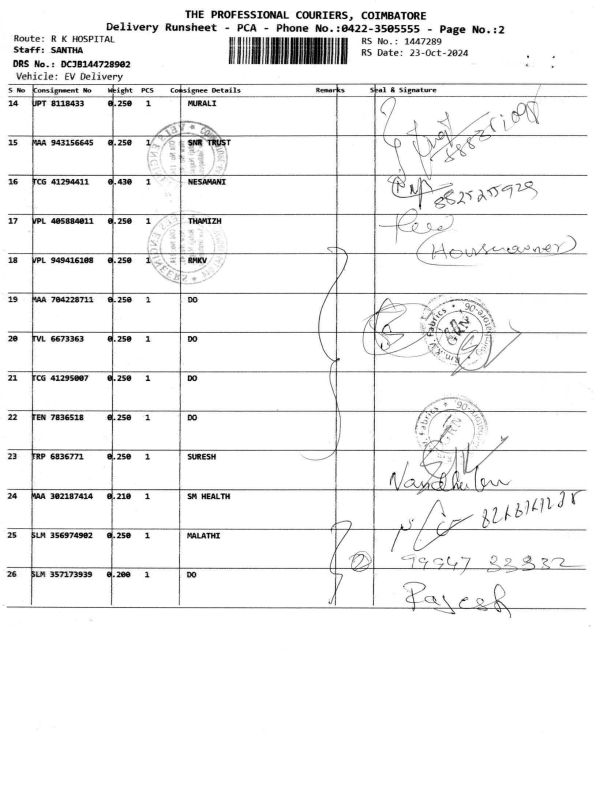 THE PROFESSIONAL COURIERS, COIMBATORE
Delivery Runsheet - PCA - Phone No.:0422-3505555 - Page No.:2
Route: R K HOSPITAL
RS No.: 1447289
Staff: SANTHA
RS Date: 23-Oct-2024
DRS No.: DCJB144728902
Vehicle: EV Delivery
S No Consignment No Weight PCS Consignee Details Remarks Seal & Signature
14 UPT 8118433 0.250 1 MURALI
15 MAA 943156645 0.250 1 SNR TRUST
16 TCG 41294411 0.430 1 NESAMANI
8825255929
17 VPL 405884011 0.250 1 THAMIZH
(Houseowner)
18 VPL 949416108 0.250 1 RMKV
19 MAA 704228711 0.250 1 DO
20 TVL 6673363 0.250 1 DO
21 TCG 41295007 0.250 1 DO
22 TEN 7836518 0.250 1 DO
23 TRP 6836771 0.250 1 SURESH
24 MAA 302187414 0.210 1 SM HEALTH
25 SLM 356974902 0.250 1 MALATHI
2 99947 33332
26 SLM 357173939 0.200 1 DO
Rajesh